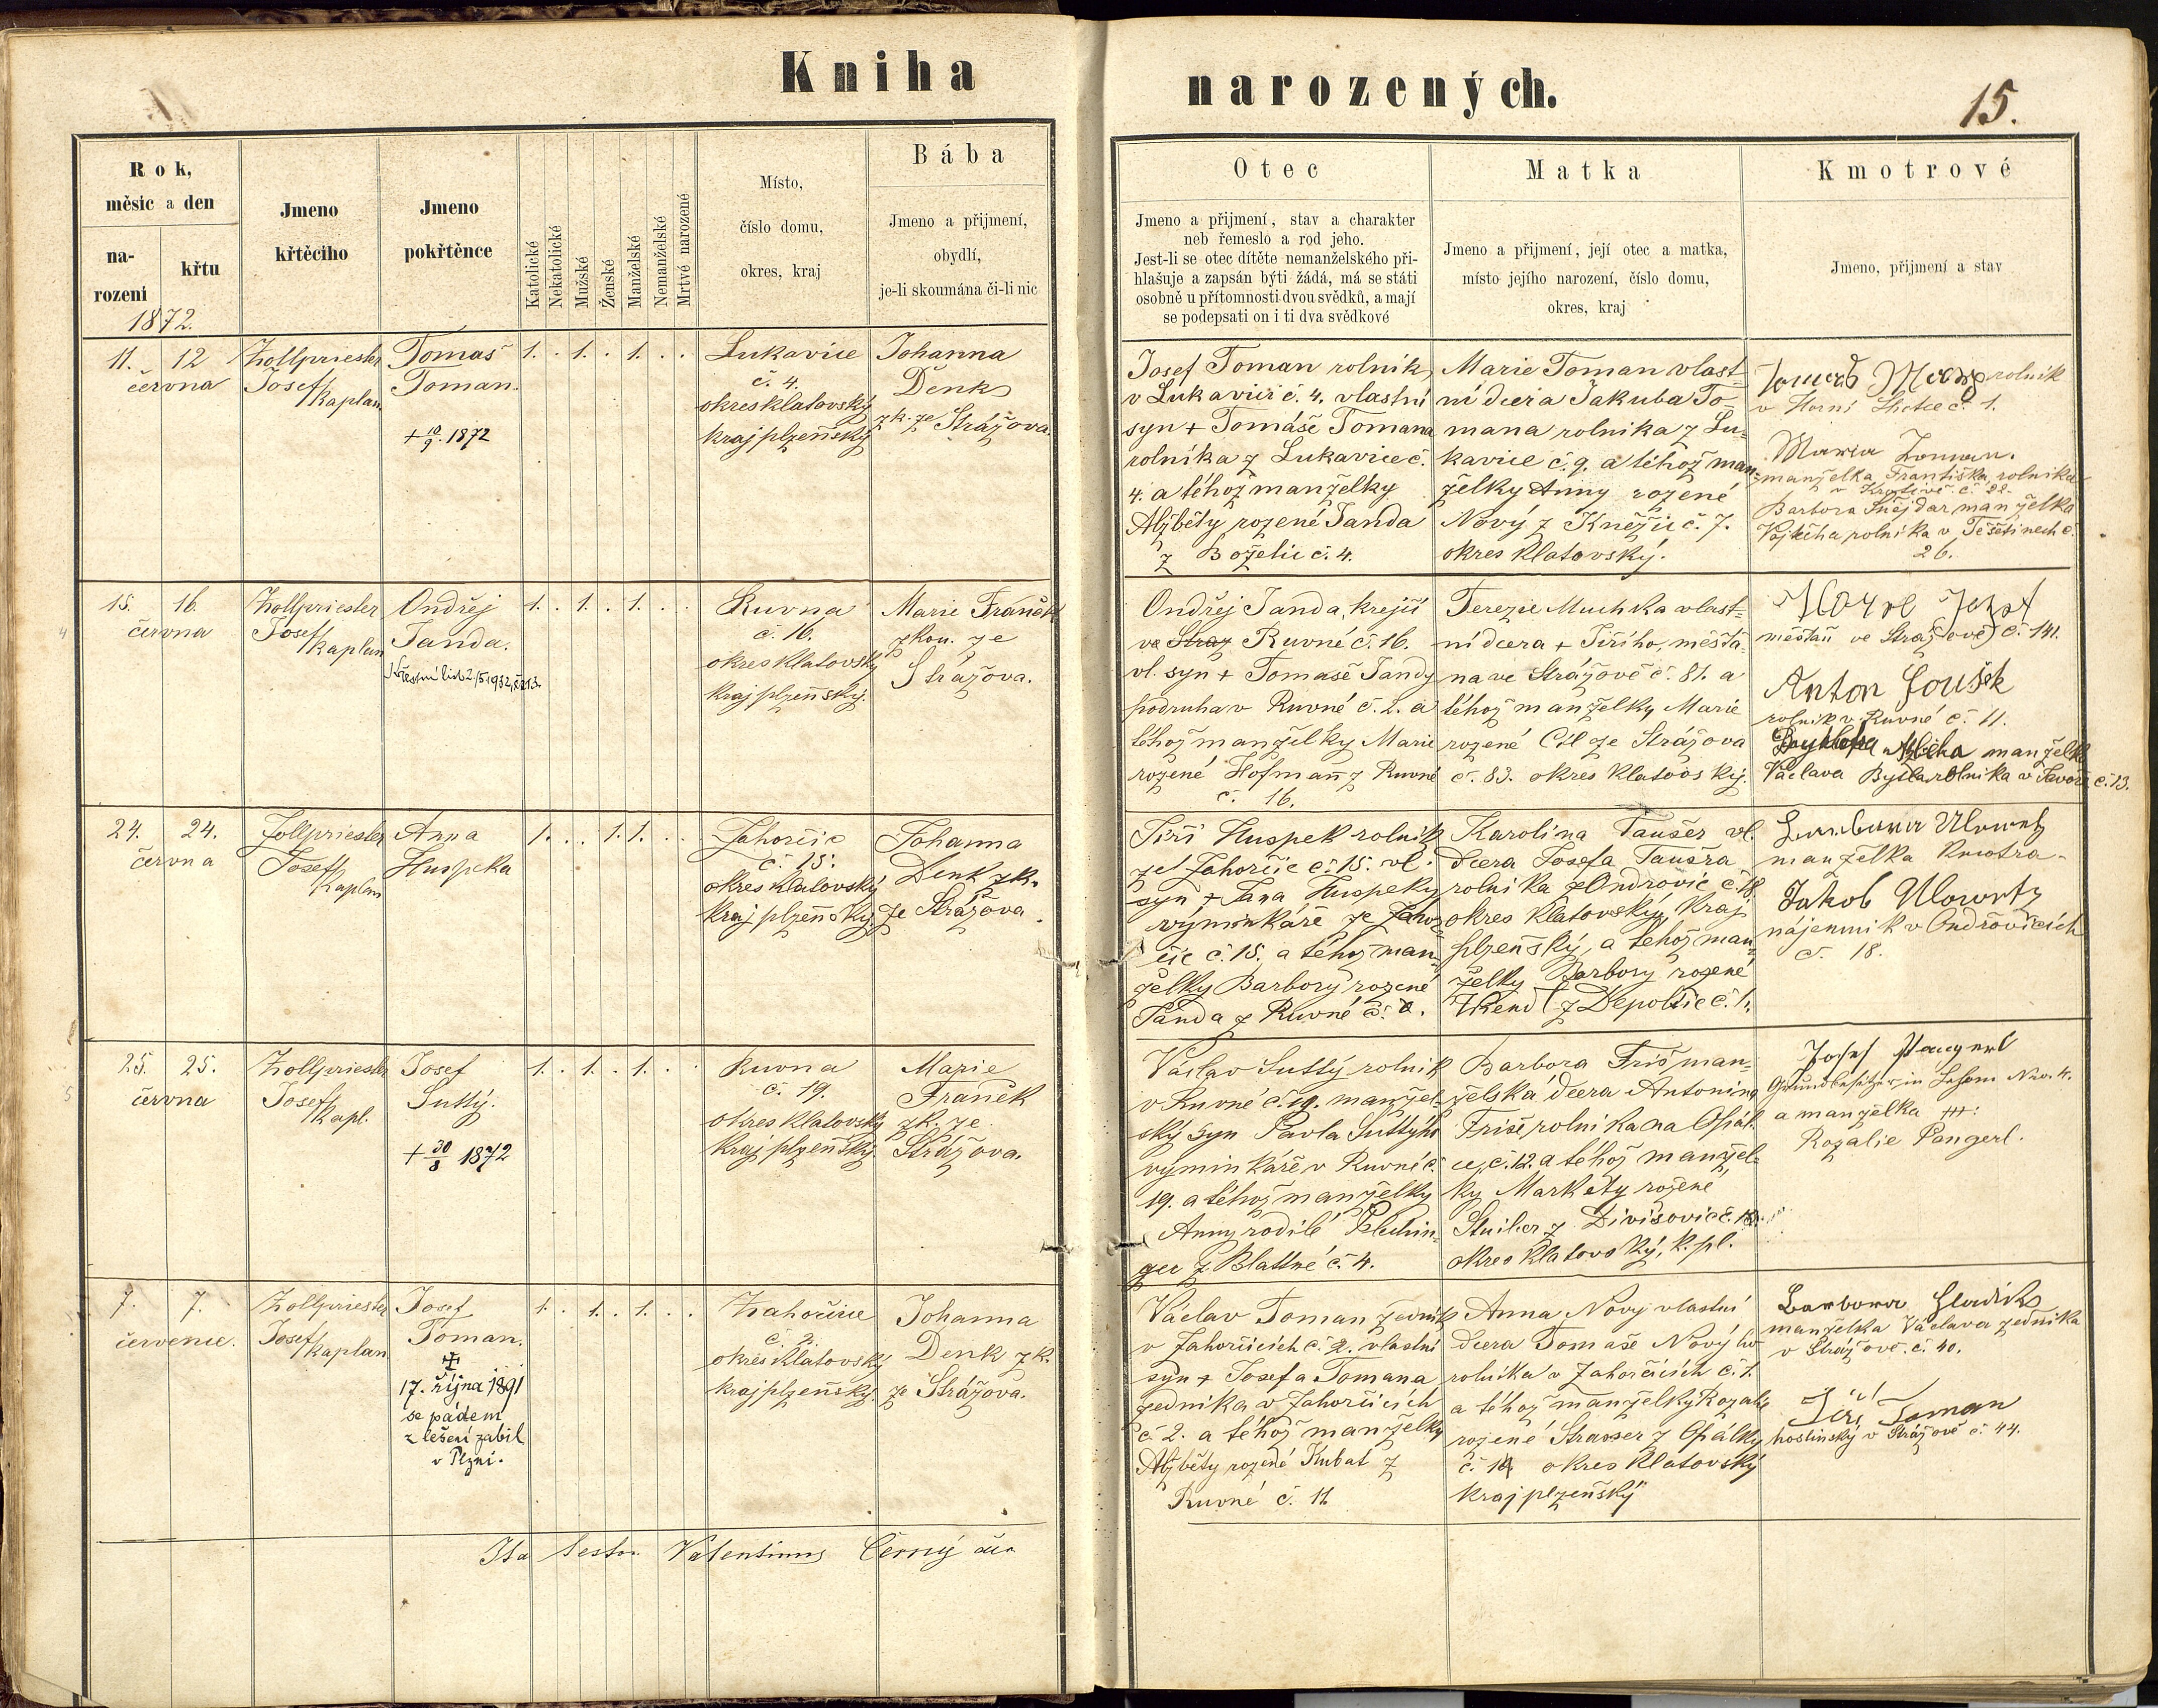 Kniha
narozených.
15.
Rok,
měsíc a den
na-
rození
křtu
Jmeno
křtěcího
Jmeno
pokřtěnce
Katolické
Nekatolické
Mužské
Ženské
Manželské
Nemanželské
Mrtvé narozené
Místo,
číslo domu,
okres, kraj
Bába
Jmeno a přijmení,
obydlí,
je-li skoumána či-li nic
Otec
Jmeno a přijmení, stav a charakter
neb řemeslo a rod jeho.
Jest-li se otec dítěte nemanželského při-
hlašuje a zapsán býti žádá, má se státi
osobně u přítomnosti dvou svědků, a mají
se podepsati on i ti dva svědkové
Matka
Jmeno a přijmení, její otec a matka,
místo jejího narození, číslo domu,
okres, kraj
Kmotrové
Jmeno, přijmení a stav
1872.
11. 12
června
Zollpriester
Josef
kaplan
Tomáš
Toman.
+ 10/9. 1872
1. . 1. . 1. . .
Lukavice
č. 4.
okres klatovský
kraj plzeňský
Johanna
Denk
zk. ze Strážova.
Josef Toman rolník
v Lukavici č. 4. vlastní
syn + Tomáše Tomana
rolníka z Lukavice č.
4. a téhož manželky
Alžběty rozené Janda
z Boželic č. 4.
Marie Toman vlast-
ní dcera Jakuba To-
mana rolníka z Lu-
kavice č. 9. a téhož man-
želky Anny rozené
Nový z Kněžic č. 7.
okres klatovský.
rolník
v Horní Lhotce č. 1.
Maria Toman.
manželka Františka rolníka
č. 22.
Barbora Šnejdar manželka
Vojtěcha rolníka v Těšetinech č.
26.
15. 16.
června
Zollpriester
Josef
kaplan
Ondřej
Janda.
Křestní list 2/5 1932, č. 213.
1. . 1. . 1. . .
Ruvna
č. 16.
okres klatovský
kraj plzeňský.
Marie Franěk
zkou. ze
Strážova.
Ondřej Janda, krejčí
ve Straz Ruvné č. 16.
vl. syn + Tomáše Jandy
podruha v Ruvné č. 2. a
téhož manželky Marie
rozené Hofmann z Ruvné
č. 16.
Terezie Muchka vlast-
ní dcera + Jiřího, měšťa-
na ve Strážově č. 81. a
téhož manželky Marie
rozené Cíl ze Strážova
č. 83. okres klatovský.
měšťan ve Strážově č. 141.
Anton Joušek
rolník v Ruvné č. 11.
manželka
Václava rolníka v Javoří č. 13.
24. 24.
června
Zollpriester
Josef
kaplan
Anna
Huspeka
1. . . 1. 1. . .
Zahorčic
č. 15.
okres klatovský
kraj plzeňský
Johanna
Denk zk.
ze Strážova.
Jiří Huspek rolník
ze Zahorčic č. 15. vl.
syn + Jana Huspeky
výminkáře ze Zahor-
čic č. 15. a téhož man-
želky Barbory rozené
Janda z Ruvné č. 2.
Karolina Taušer vl.
dcera Josefa Taušra
rolníka z Ondřovic č. 18
okres klatovský, kraj
plzeňský, a téhož man-
želky Barbory rozené
z Depoltic č. 1.
Barbara Ulowetz
manželka kmotra.
Jakob Ulowetz
nájemník v Ondřovicích
č. 18.
25. 25.
června
Zollpriester
Josef
kapl.
Josef
Suttý.
+ 30/8 1872
1. . 1. . 1. . .
Ruvna
č. 19.
okres klatovský
kraj plzeňský.
Marie
Franěk
zk. ze
Strážova.
Václav Suttý rolník
v Ruvné č. 19. manžel-
ský syn Pavla Suttýho
výminkáře v Ruvné č.
19. a téhož manželky
Anny rodilé
z Blattné č. 4.
Barbora Friš man-
želská dcera Antonína
Friše rolníka na Opál-
ce, č. 12. a téhož manžel-
ky Markéty rozené
z Divišovic č. 18.
okres klatovský, k. pl.
Josef Pangerl
Grundbesitzer in No. 4.
a manželka +++:
Rozalie Pangerl.
7. 7.
července.
Zollpriester
Josef
kaplan
Josef
Toman.
17. října 1891
se pádem
z lešení zabil
v Plzni.
1. . 1. . 1. . .
Zahorčice
č. 2.
okres klatovský
kraj plzeňský.
Johanna
Denk zk.
ze Strážova.
Václav Toman zedník
v Zahorčicích č. 2. vlastní
syn + Josefa Tomana
zedníka v Zahorčicích
č. 2. a téhož manželky
Alžběty rozené Kubat z
Ruvné č. 11
Anna Nový vlastní
dcera Tomáše Novýho
rolníka v Zahorčicích č. 1.
a téhož manželky Rozalie
rozené Strasser z Opálky
č. 14 okres klatovský
kraj plzeňský
Barbora Hladík
manželka Václava zedníka
v Strážově č. 40.
Jiří Toman
hostinský v Strážově č. 44.
Ita testor Valentinus Černý